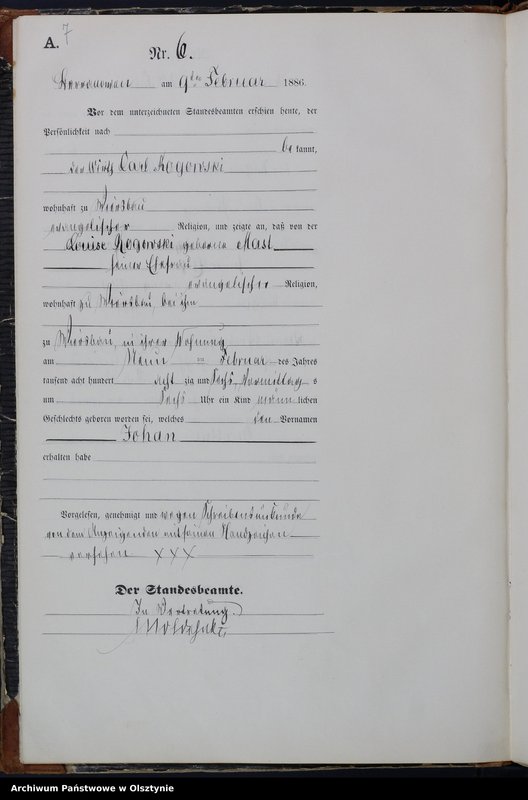 A. 7
Nr. 6.
am 9ten Februar 1886.
Vor dem unterzeichneten Standesbeamten erschien heute, der
Persönlichkeit nach
be kannt,
der Wirth Carl Rogowski
wohnhaft zu
evangelischer Religion, und zeigte an, daß von der
Louise Rogowski geborene Mast
seiner Ehefrau
evangelischer Religion,
wohnhaft zu bei ihm
zu in ihrer Wohnung
am Neun ten Februar des Jahres
tausend acht hundert acht zig und sechs Vormittag s
um sechs Uhr ein Kind männ lichen
Geschlechts geboren worden sei, welches den Vornamen
Johan
erhalten habe
Vorgelesen, genehmigt und wegen Schreibensunkunde
von dem Anzeigenden mit seinen Handzeichen
versehen XXX
Der Standesbeamte.
In Vertretung.
Archiwum Państwowe w Olsztynie